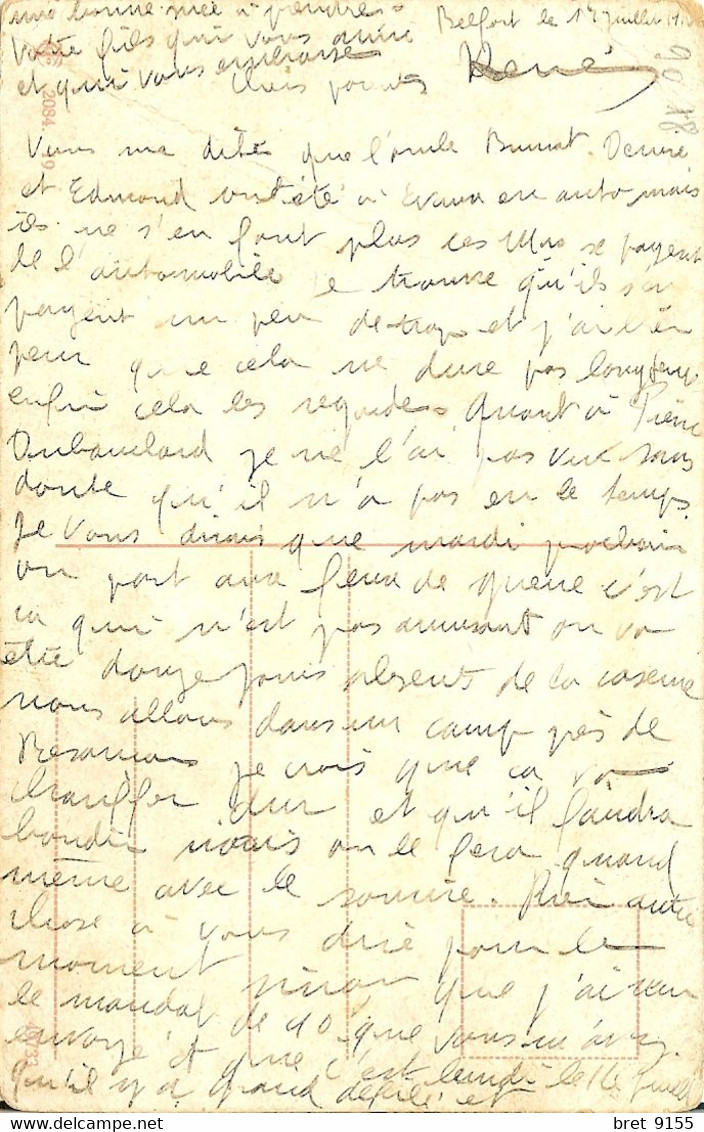 ma bonne
votre fils qui vous aime
et qui vous embrasse
René
Belfort le 17 Juillet
Chers parents
90 18
2084. 19
Vous me dites que l'oncle
et Edmond ont été à en auto mais
ils ne s'en font plus ces Mrs se payent
de l'automobile Je trouve qu'ils s'en
payent un peu de trop et j'ai bien
peur que cela ne dure pas longtemps
enfin cela les regardes. Quant à Pierre
je ne l'ai pas vue sans
doute qu'il n'a pas eu le temps.
Je vous dirais que mardi prochain
on part aux de guerre c'est
ca qui n'est pas amusant on va
être douze jours absents de la caserne
nous allons dans un camp près de
Besancon je crois que ca va
chauffer dur et qu'il faudra
on le fera quand
même avec le sourire. Rien autre
chose à vous dire pour le
moment sinon que j'ai reçu
le mandat de 10 que vous m'avez
envoyé et que c'est lundi le 16 Juillet
qu'il y a grand défilé et
bret 9155